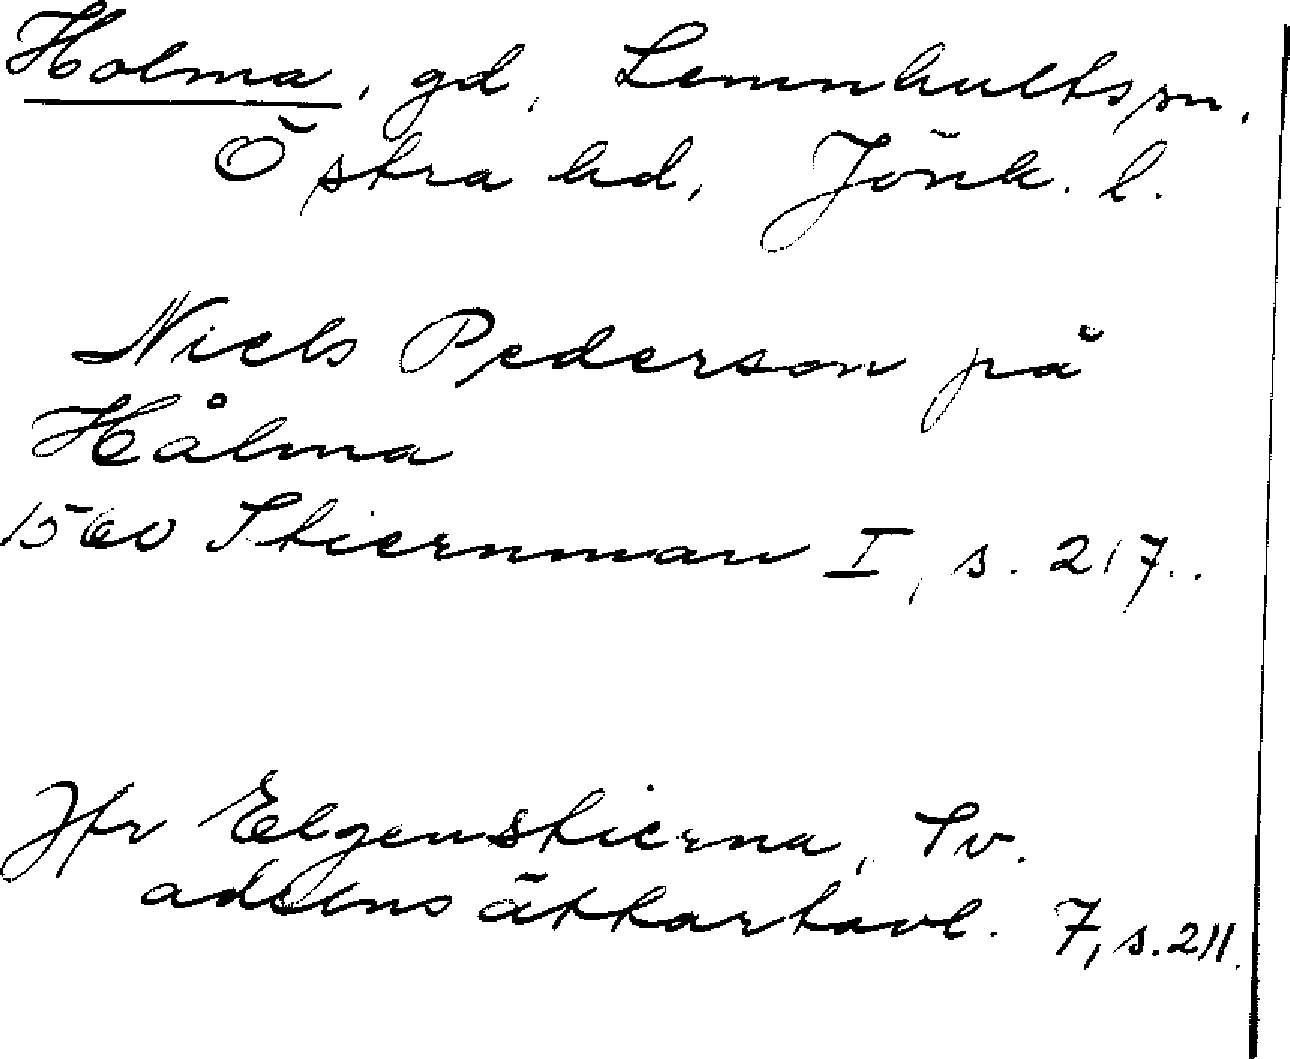 Holma, gd, Lemnhults sn,
Östra hd, Jönk. l.
Niels Pederson på
Hålma
1560 Stiernman I, s. 217..
Jfr Elgenstierna, Sv.
adelns ättartavl. 7, s. 211.